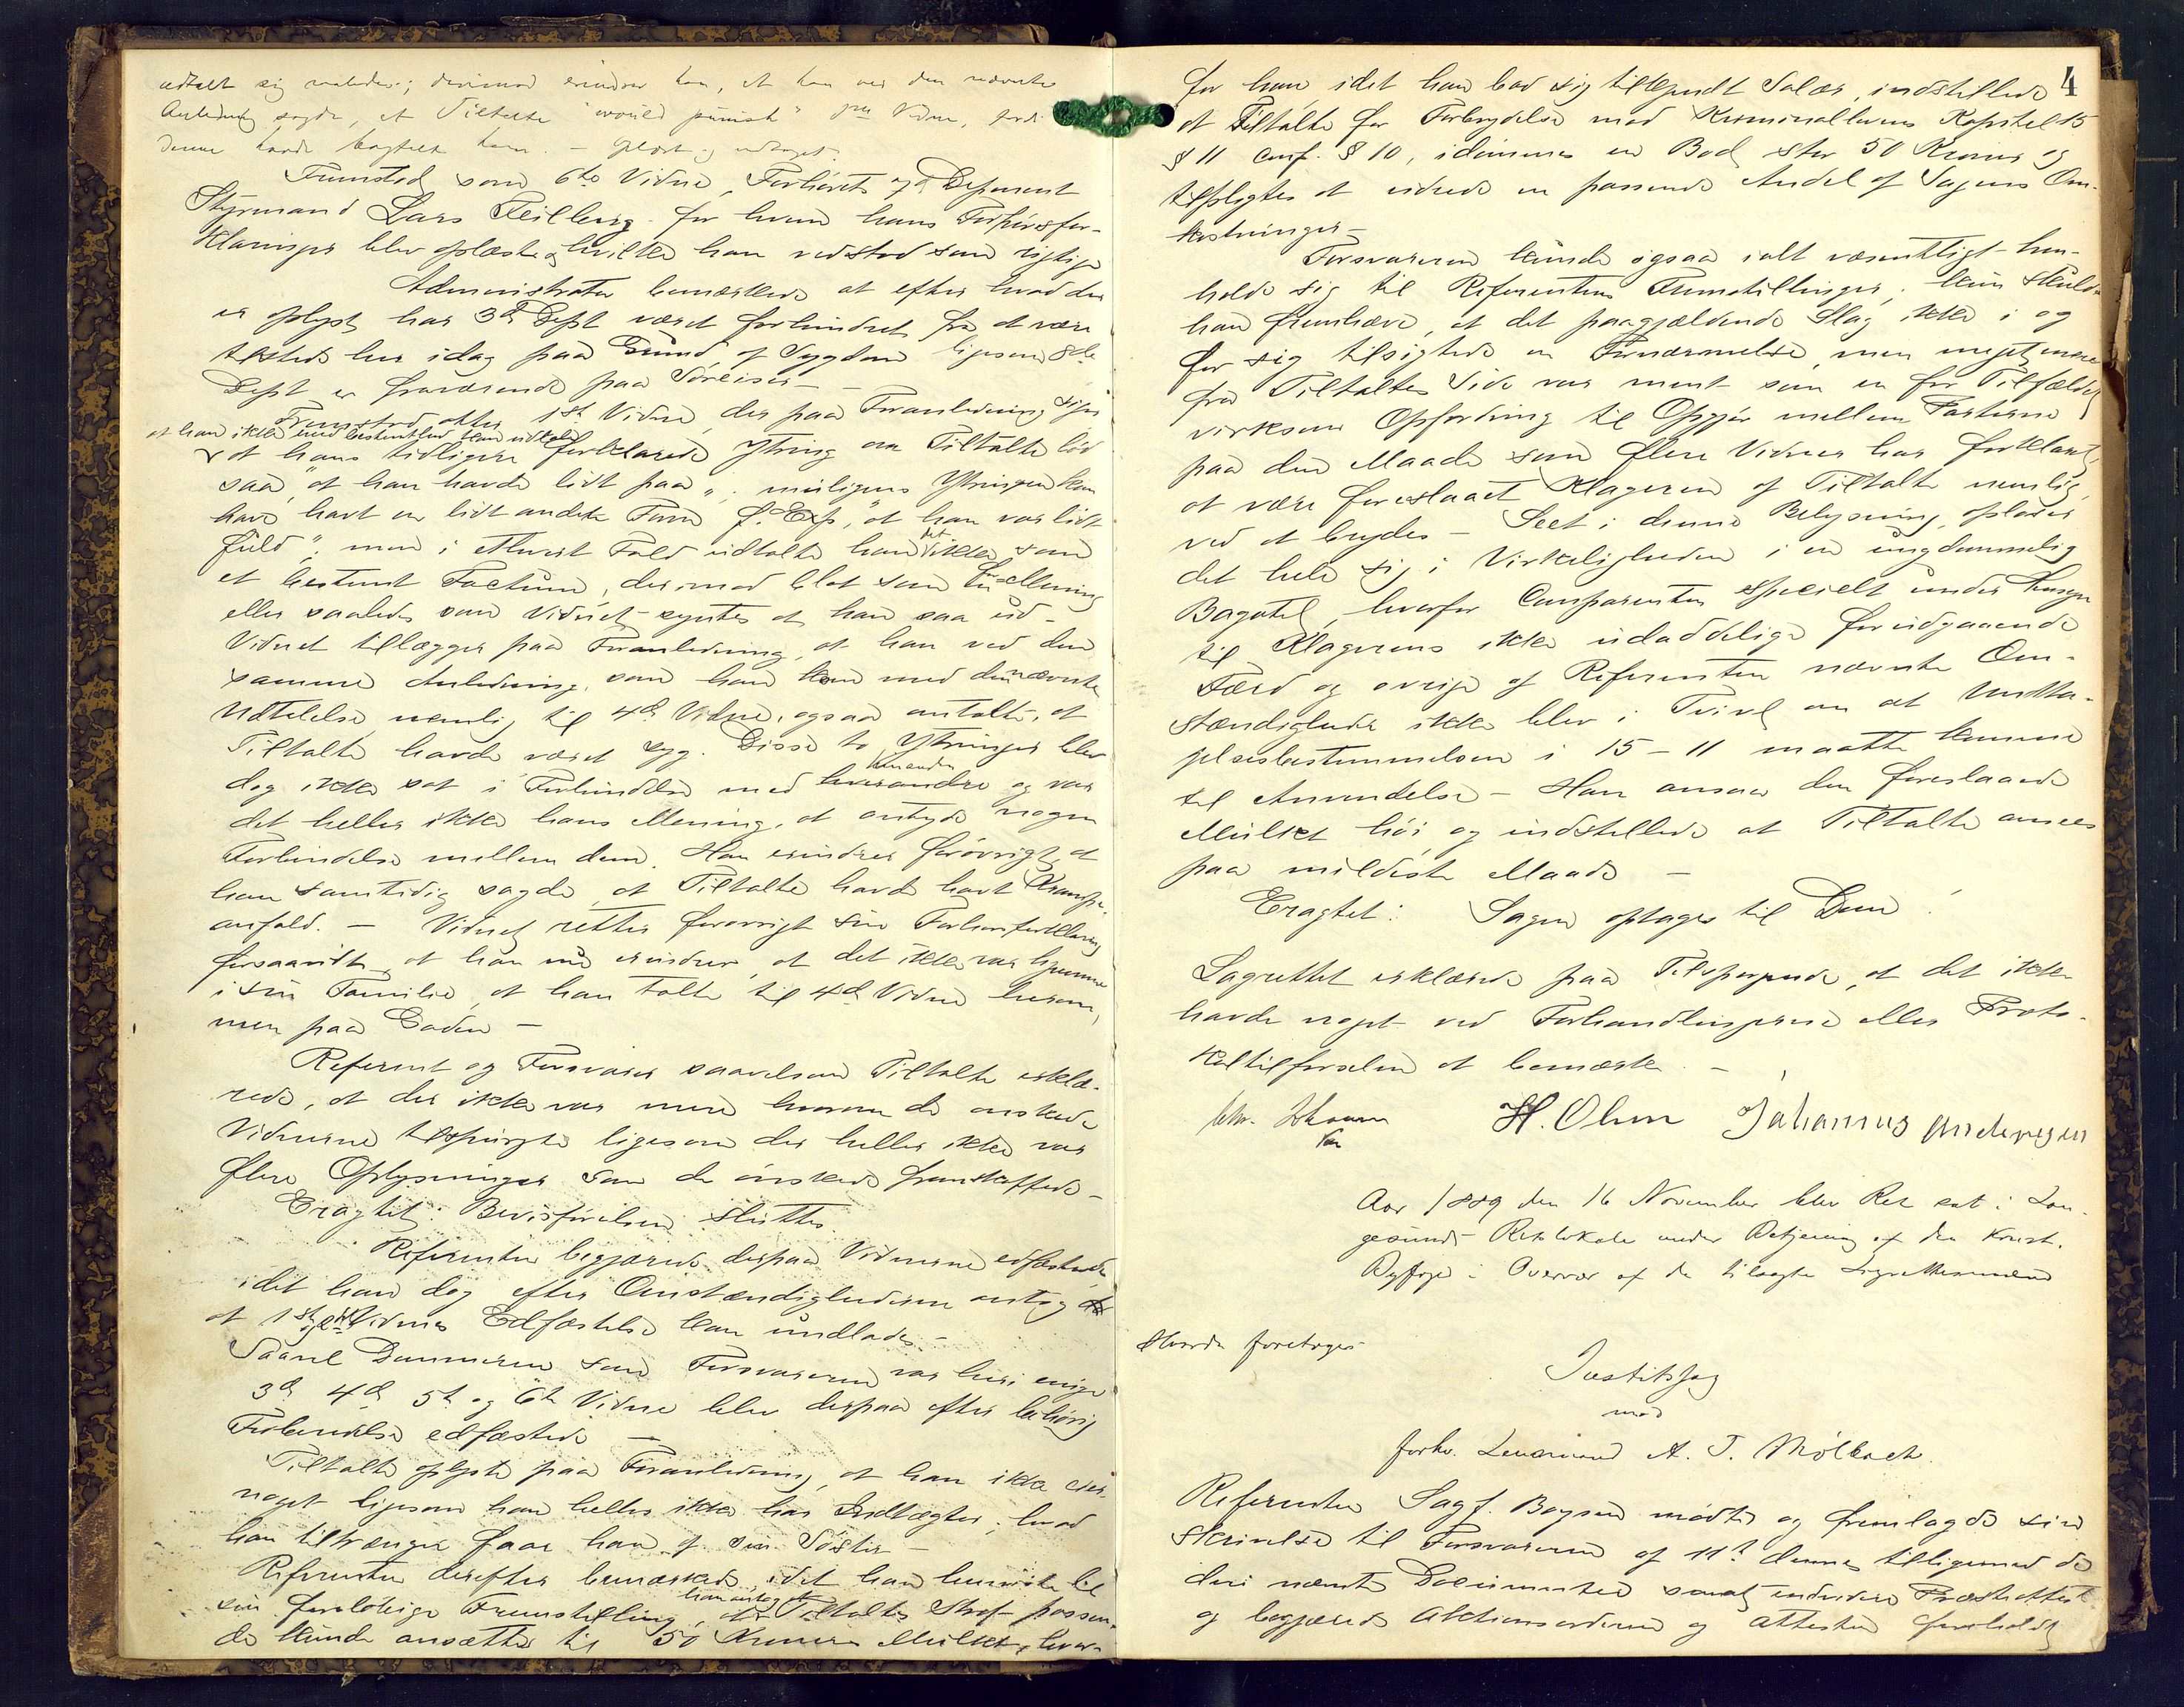 udtalt sig saaledes; derimod erindrer han, at han ved den nævnte
Anledning sagde, at Tiltalte "would punish" Vidne, fordi
denne havde bagtalt ham. – Oplæst og vedtaget.
Fremstod som 6te Vidne, Forhørets Deponent
Styrmand Lars Feilberg for hvem hans Forhørsfor-
klaringer blev oplæste, hvilke han vedstod som rigtige
Administrator bemærkede at efter hvad der
er oplyst har 3de Dept været forhindret fra at være
tilstede her idag paa Grund af Sygdom ligesom 8de
Dept er fraværende paa Søreiser –
Fremstod atter 1ste Vidne, der paa Foranledning siger
at han ikke med Bestemthed kan udtale
at hans tidligere forklarede Ytring om Tiltalte lød
saa, "at han havde lidt paa"; muligens Ytringen kan
have havt en lidt anden Form f. Exp, "at han var lidt
fuld"; men i ethvert Fald udtalte han det ikke som
et bestemt Factum, derimod blot som en Mening
eller saaledes som Vidnet syntes at han saa ud –
Vidnet tillægger paa Foranledning, at han ved den
samme Anledning, som han kom med den nævnte
Udtalelse nemlig til 4de Vidne, ogsaa omtalte, at
Tiltalte havde været syg. Disse to Ytringer blev
dog ikke sat i Forbindelse med hverandre og var
det heller ikke hans Mening, at antyde nogen
Forbindelse mellem dem. Han erindrer forøvrigt, at
han samtidig sagde at Tiltalte havde havt Krampe-
anfald. – Vidnet retter forøvrigt sin Forhørsforklaring
forsaavidt, at han nu erindrer, at det ikke var hjemme
i sin Familie, at han talte til 4de Vidne herom,
men paa Gaden –
Referent og Forsvarer saavelsom Tiltalte erklæ-
rede, at der ikke var mere hvorom de ønskede
Vidnerne tilspurgte ligesom der heller ikke var
flere Oplysninger som de ønskede fremskaffede –
Eragtet: Bevisførelsen sluttes.
Referenten begjærede derpaa Vidnerne edfæstede
idet han dog efter Omstændighederne antog
at 1ste og 2det Vidnes Edfæstelse kan undlades –
Saavel Dommeren som Forsvareren var heri enige
3de 4de 5te og 6te Vidne blev derpaa efter behørig
Forberedelse edfæstede –
Tiltalte oplyste paa Foranledning, at han ikke eier
noget ligesom han heller ikke har Indtægter; hvad
han tiltrænger faar han af sin Søster –
Referenten derefter bemærkede, idet han henviste til
han antog at
sin foreløbige Fremstilling, Tiltaltes Straf passen-
de kunde ansættes til 50 Kroners Mulkt, hvor-
4
for han, idet han bad sig tilkjendt Salær, indstillede
at Tiltalte for Forbrydelse mod Kriminallovens Kapitel 15
§ 11 conf. § 10, idømmes en Bod stor 50 Kroner og
tilpligtes at udrede en passende Andel af Sagens Om-
kostninger –
Forsvareren kunde ogsaa ialt væsentligt hen-
holde sig til Referentens Fremstillinger; kun skulde
han fremhæve, at det paagjældende Slag ikke i og
for sig tilsigtede en Fornærmelse, men meget mere
fra Tiltaltes Side var ment som en for Tilfældet
virksom Opfordring til Opgjør mellem Parterne
paa den Maade som flere Vidner har forklaret
at være foreslaaet Klageren af Tiltalte nemlig
ved at brydes – Seet i denne Belysning, opløser
det hele sig i Virkeligheden i en ungdommelig
Bagatel, hvorfor Comparenten specielt under Hensyn
til Klagerens ikke udadelige forudgaaende
Færd og øvrige af Referenten nævnte Om-
stændigheder ikke blev i Tvivl om at Undta-
gelsesbestemmelsen i 15 – 11 maatte komme
til Anvendelse – Han ansaa den foreslaaede
Mulkt høi og indstillede at Tiltalte ansees
paa mildeste Maade –
Eragtet: Sagen optages til Dom!
Lagrettet erklærede paa Tilspørgende, at det ikke
havde noget ved Forhandlingerne eller Proto-
koltilførselen at bemærke. –
H. Olsen Johannes Andersen
Aar 1889 den 16 November blev Ret sat i Lan-
gesunds Retslokale under Betjening af den konst.
Byfoged i Overvær af de tilsagte Lagrettesmænd
Hvorda foretoges
Justitssag
mod
forhv. Lensmand A. T. Mølbach
Referenten Sagf. Boysen mødte og fremlagde sin
Skrivelse til Forsvareren af 11te dennes tilligemed de
deri nævnte Documenter samt endvidere Præsteattest
og begjærede Aktionsordren og Attesten foreholdt